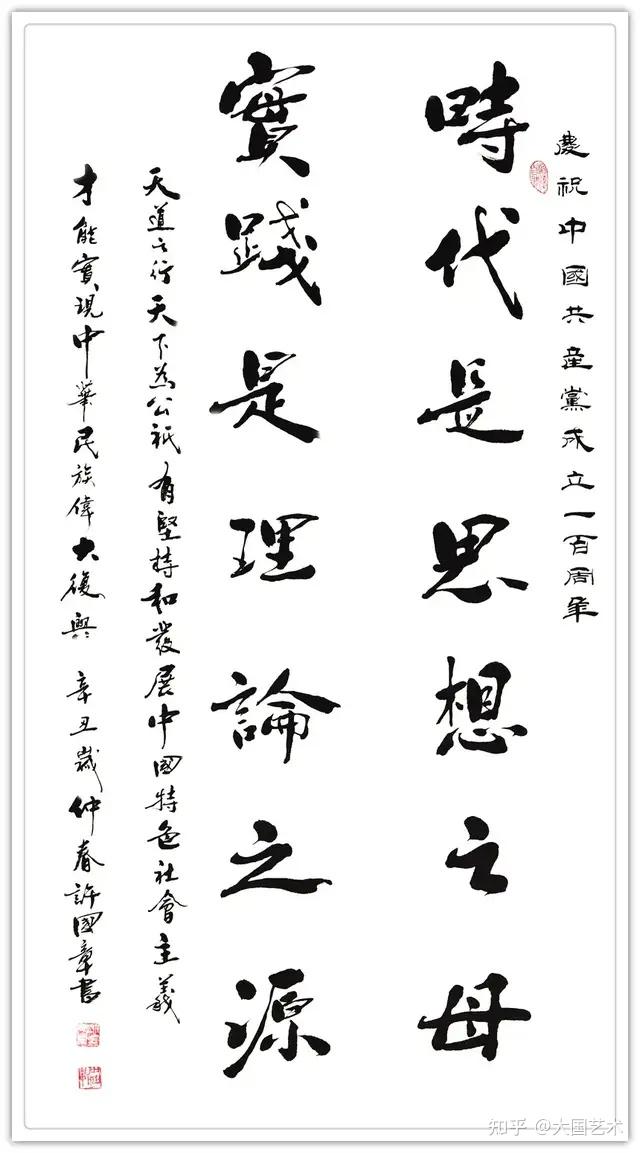 慶祝中國共産黨成立一百周年
時代是思想之母
實踐是理論之源
天道之行天下為公祇有堅持和發展中國特色社會主義
才能實現中華民族偉大復興 辛丑歲仲春許國章書
知乎 @大国艺术